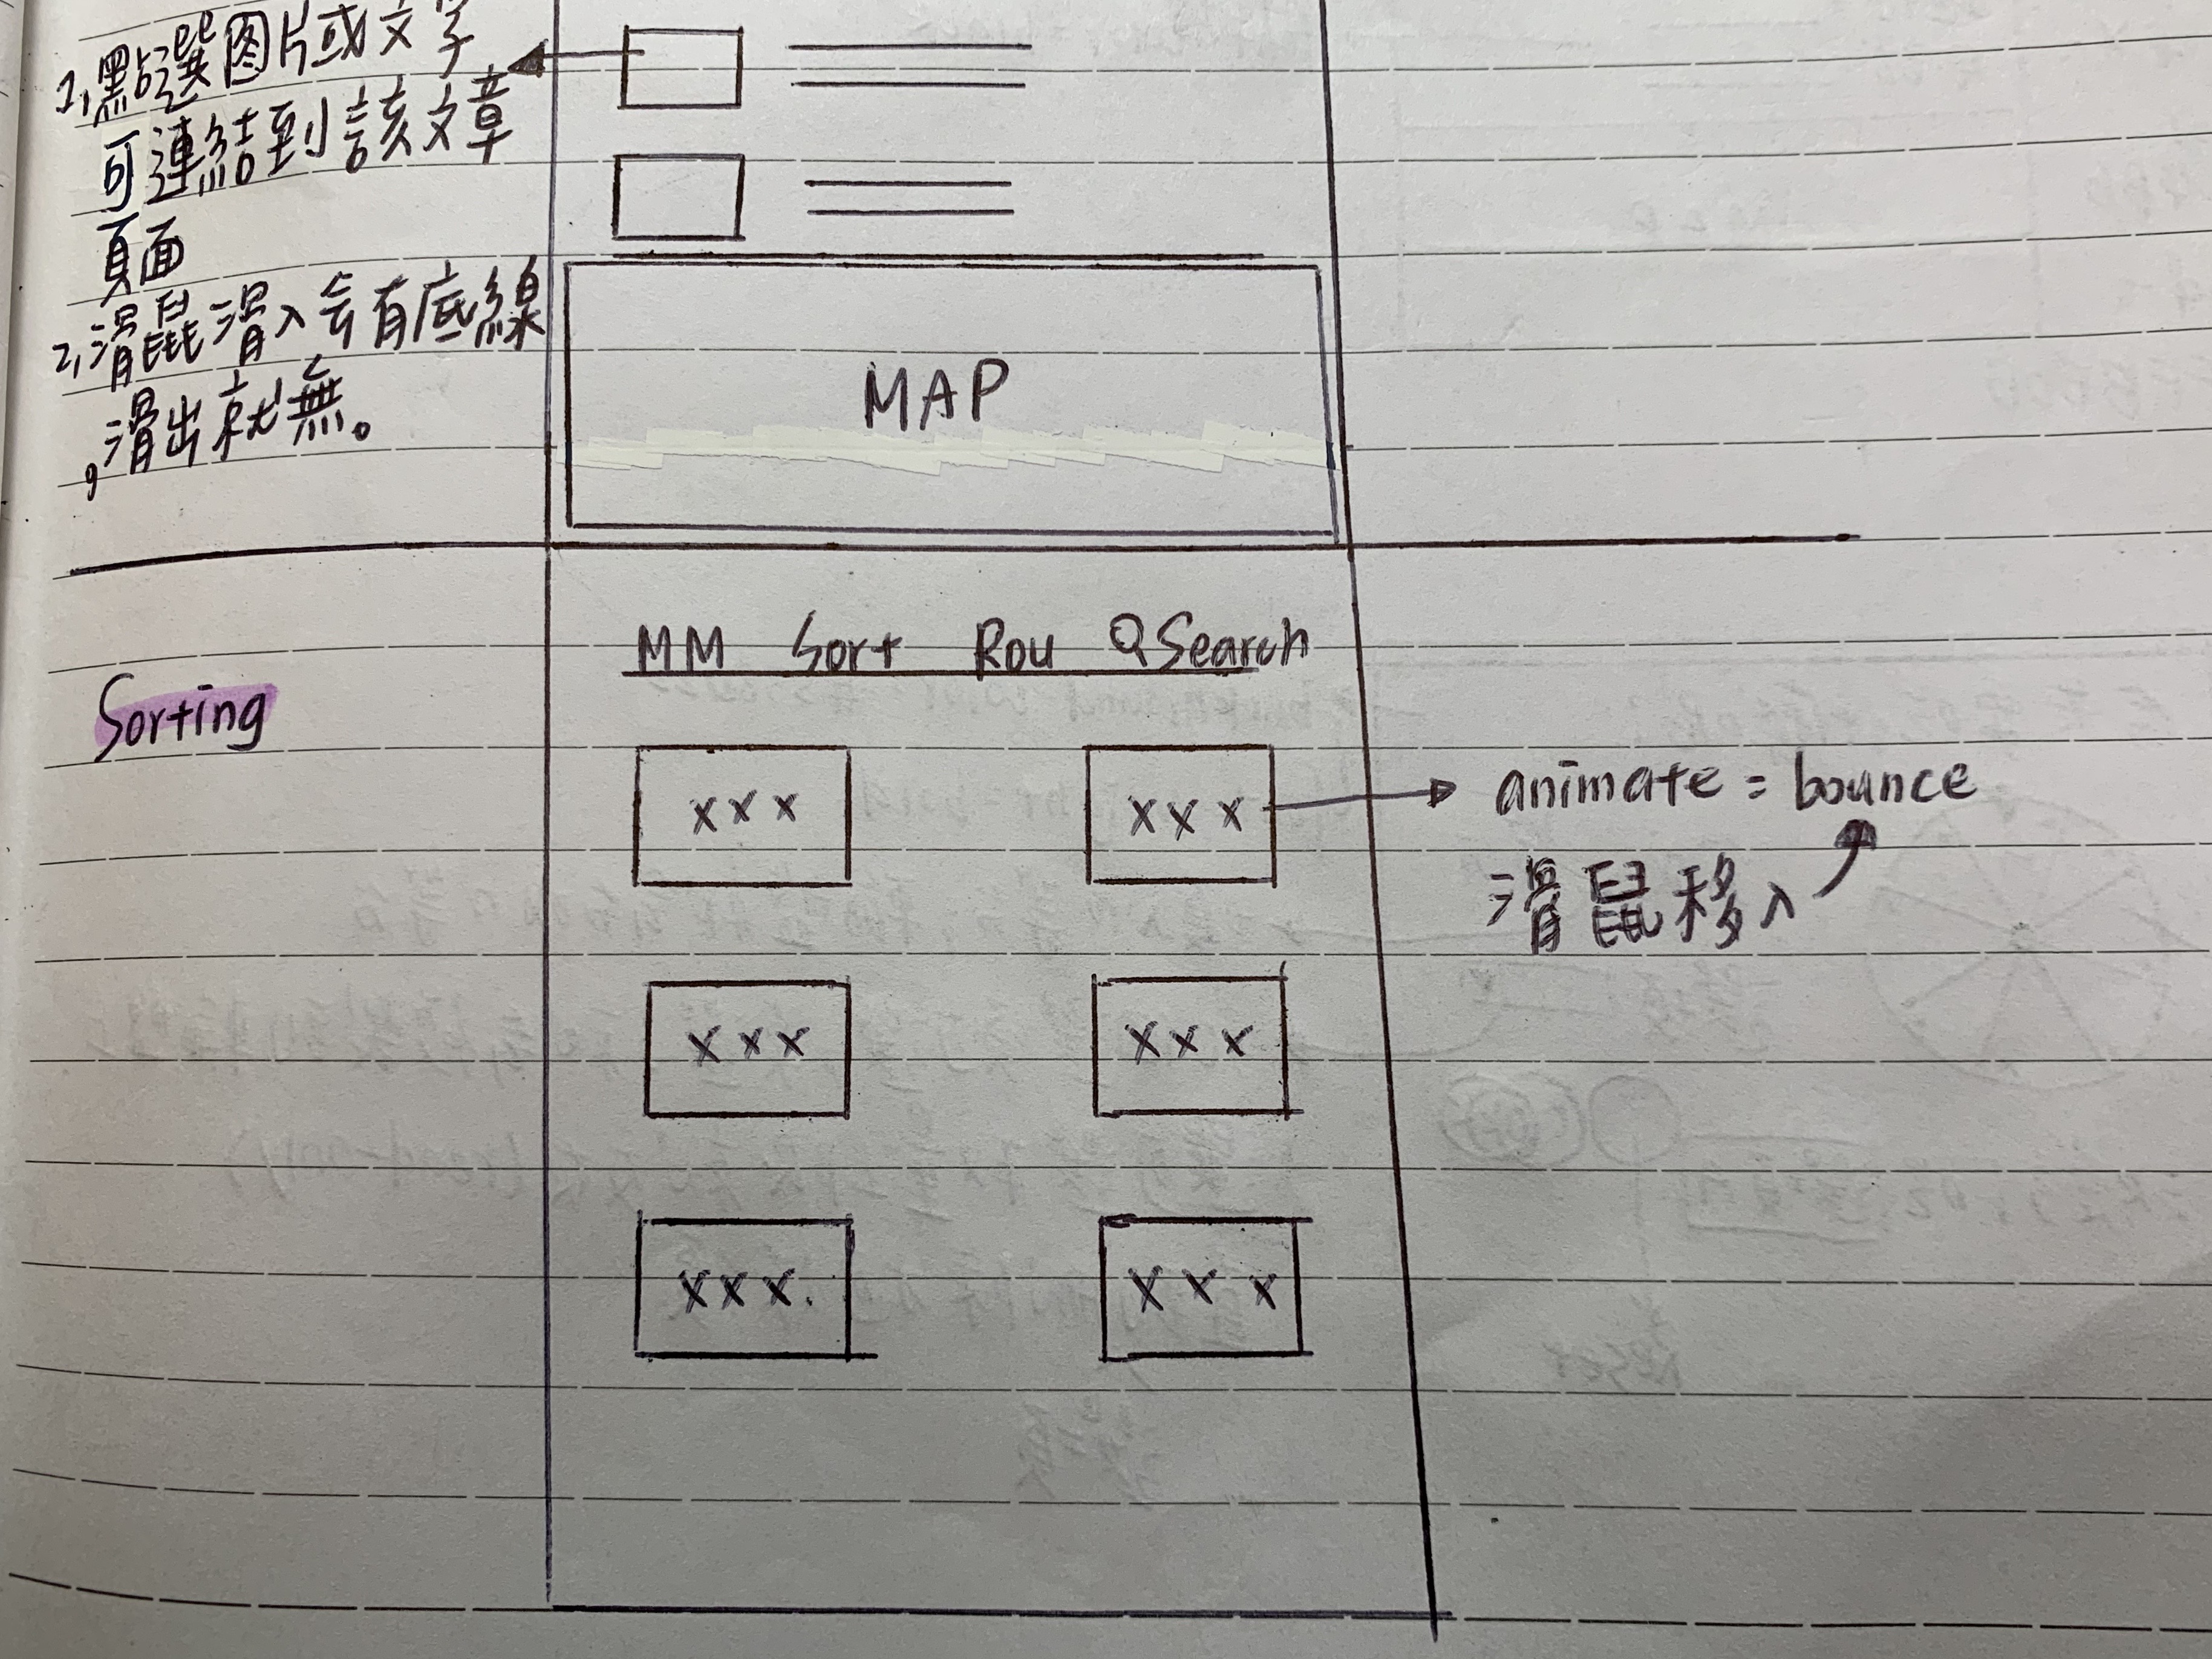 1,點選图片或文字
可連結到該文章
頁面
2,滑鼠滑入会有底線
,滑出就無。
MAP
MM Sort Rou Search
Sorting
xxx xxx
animate = bounce
滑鼠移入
xxx xxx
xxx. xxx